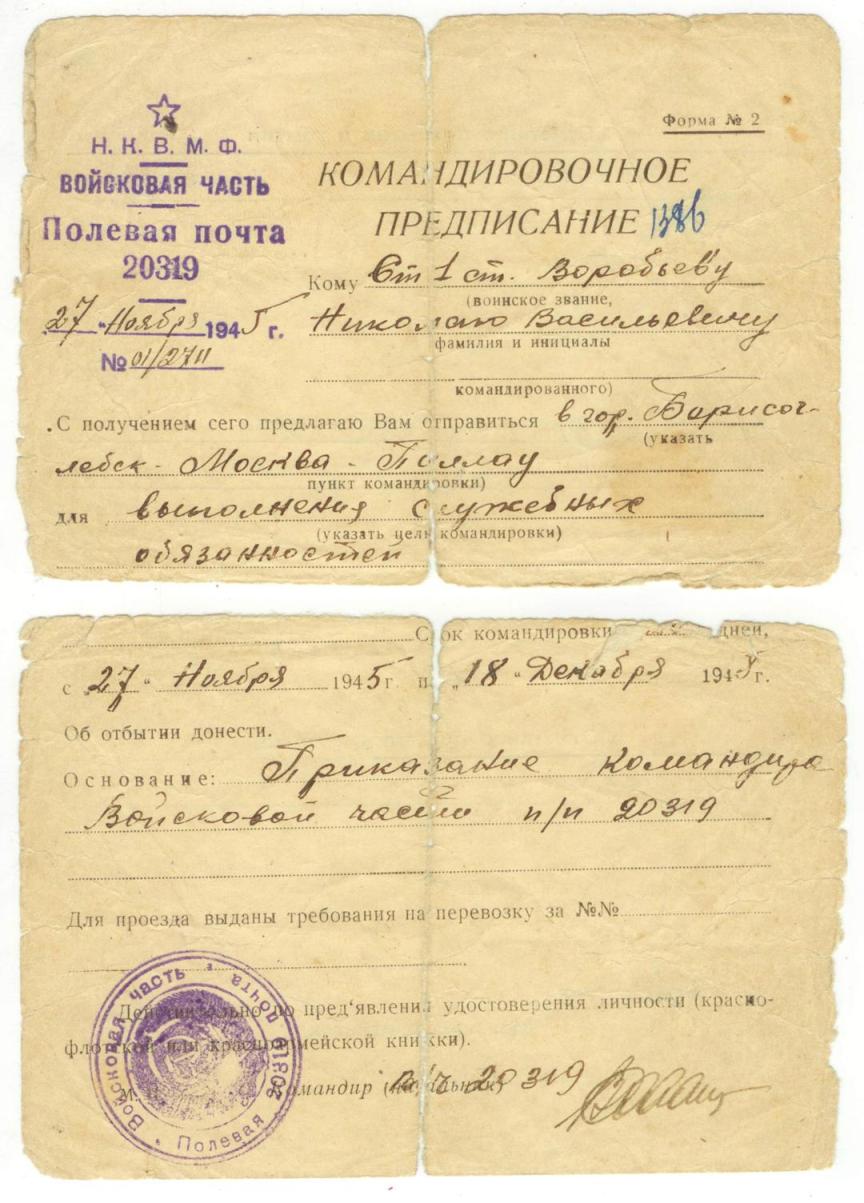 Н. К. В. М. Ф.
ВОЙСКОВАЯ ЧАСТЬ
Полевая почта
20319
27 " Ноября 1945 г.
№ 01/2711
Форма № 2
КОМАНДИРОВОЧНОЕ
ПРЕДПИСАНИЕ 1386
Кому Ст 1 ст. Воробьеву
(воинское звание,
Николаю Васильевичу
фамилия и инициалы
командированного)
С получением сего предлагаю Вам отправиться в гор. Борисог-
(указать
лебск - Москва - Пиллау
пункт командировки)
для выполнения служебных
(указать цель командировки)
обязанностей
Срок командировки дней,
с „27" Ноября 1945 г. п „18" Декабря 1945 г.
Об отбытии донести.
Основание: Приказание командира
Войсковой части п/п 20319
Для проезда выданы требования на перевозку за №№
Действительно по пред'явлении удостоверения личности (красно-
флотской или красноармейской книжки).
М. Командир (Начальник) в/ч 20319
Войсковая часть • Полевая почта 20319 •